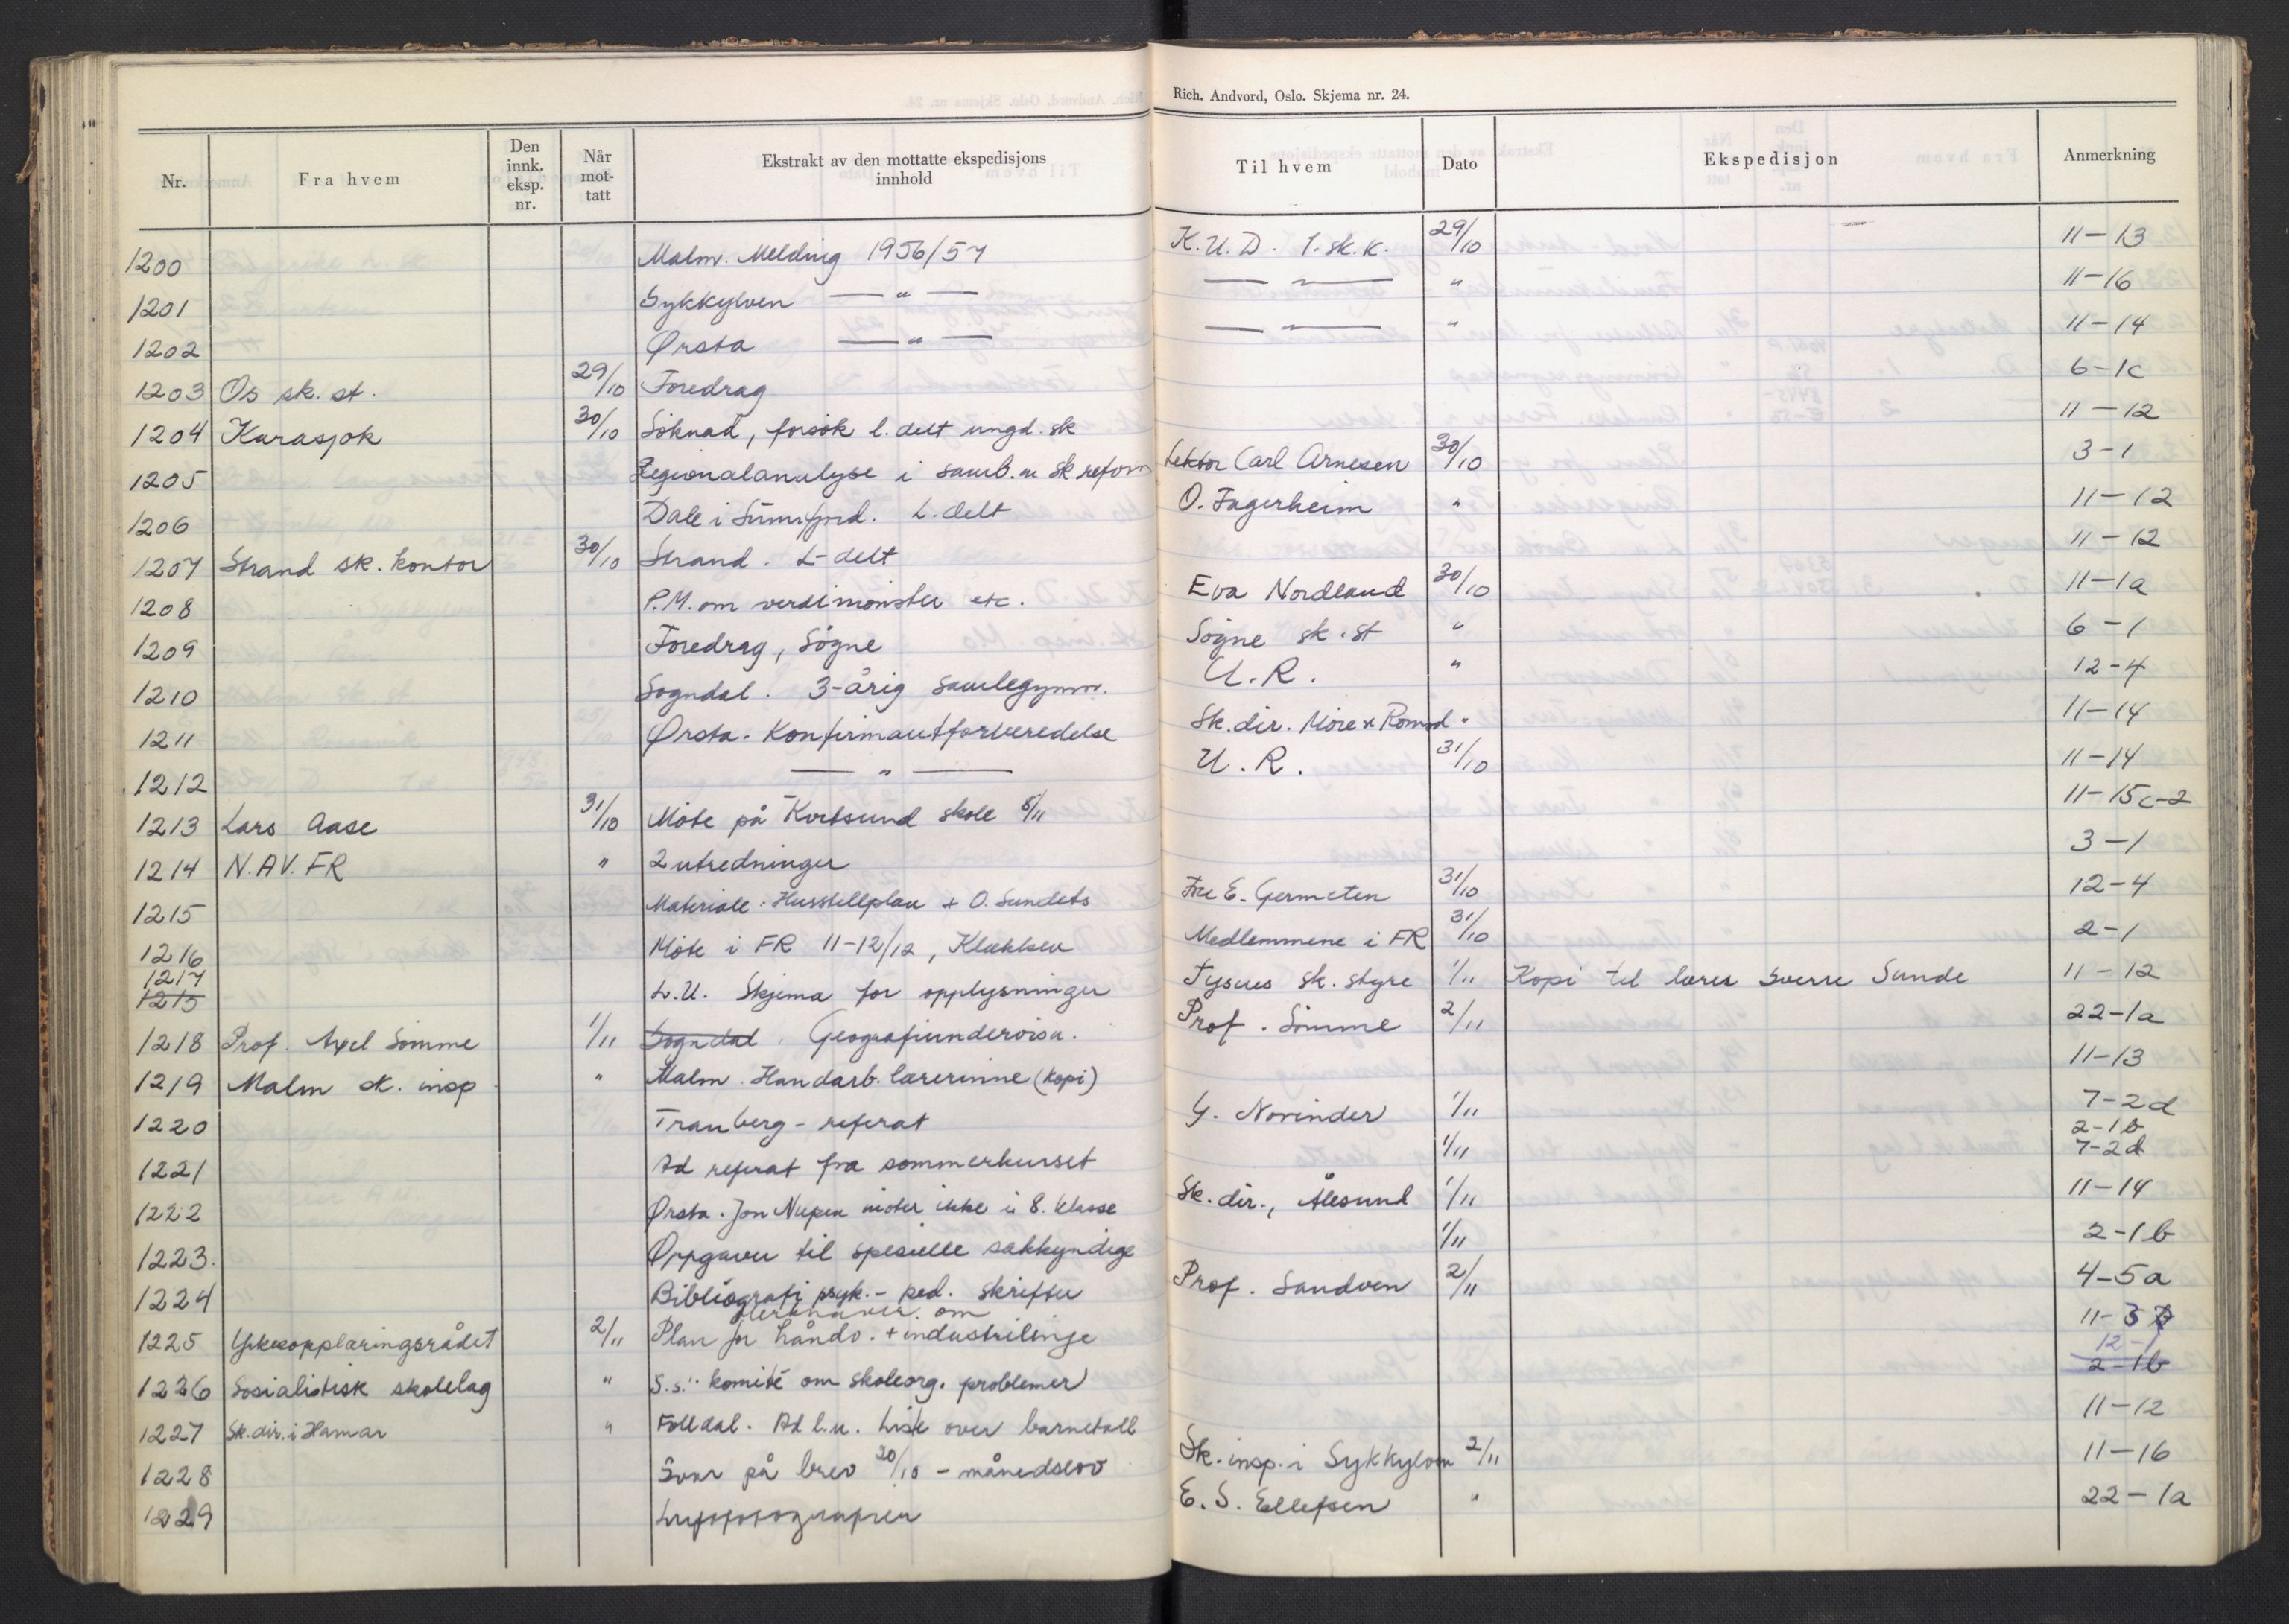 Rich. Andvord, Oslo. Skjema nr. 24.
Nr. Fra hvem Den innk. eksp. nr. Når mottatt Ekstrakt av den mottatte ekspedisjons innhold Til hvem Dato Ekspedisjon Anmerkning
1200 Malm. Melding 1956/57 K.U.D. 1. sk.k. 29/10 11-13
1201 Sykkylven — " — — " — " 11-16
1202 Ørsta — " — — " — " 11-14
1203 Os sk. st. 29/10 Foredrag 6-1c
1204 Karasjok 30/10 Søknad, forsøk l. delt ungd. sk 11-12
1205 Regionalanalyse i samb. m sk reform Lektor Carl Arnesen 30/10 3-1
1206 Dale i Sunnfjord. L. delt O. Fagerheim " 11-12
1207 Strand sk. kontor 30/10 Strand. L-delt 11-12
1208 P.M. om verdimønster etc. Eva Nordland 30/10 11-1a
1209 Foredrag, Søgne Søgne sk. st " 6-1
1210 Sogndal. 3-årig samlegymn. U.R. " 12-4
1211 Ørsta. Konfirmantforberedelse Sk. dir. Møre & Romsd. " 11-14
1212 — " — U.R. 31/10 11-14
1213 Lars Aase 31/10 Møte på skole 5/11 11-15c-2
1214 N.AV.FR " 2 utredninger 3-1
1215 Materiale: Husstellplan + O. Sundets E. Germeten 31/10 12-4
1216 Møte i FR 11-12/12, Klækken Medlemmene i FR 31/10 2-1
1217
1215 L.U. Skjema for opplysninger Tysnes sk. styre 1/11 Kopi til lærer Sverre Sunde 11-12
1218 Prof. Axel Sømme 1/11 Sogndal. Geografiundervisn. Prof. Sømme 2/11 22-1a
1219 Malm sk. insp " Malm. Handarb. lærerinne (kopi) 11-13
1220 Tranberg - referat G. Novinder 1/11 7-2d
2-1b
1221 Ad referat fra sommerkurset 1/11 7-2d
1222 Ørsta. Jon Nupen møter ikke i 8. klasse Sk. dir., Ålesund 1/11 11-14
1223. Oppgaver til spesielle sakkyndige 1/11 2-1b
1224 Bibliografi psyk.- ped. skrifter Prof. Sandven 2/11 4-5a
om
1225 Yrkesopplæringsrådet 2/11 Plan for håndv. + industrilinje 11-3
12-1
1226 Sosialistisk skolelag " S.s." komité om skoleorg. problemer 2-1b
1227 Sk. dir. i Hamar " Folldal. Ad l.u. Liste over barnetall 11-12
1228 Svar på brev 20/10 - månedslov Sk. insp. i Sykkylven 2/11 11-16
1229 E. S. Ellefsen " 22-1a